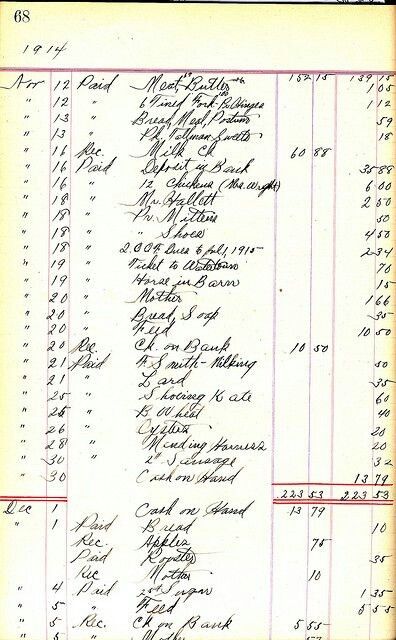 68
1914
152 15 139 15
Nov 12 Paid Meat, Butter 1 05
" 12 " 6 Tined Fork 1 12
" 13 " Bread, Meal, 59
" 13 " Pk. Tallman Sweets 18
" 16 Rec. Milk Ck 60 88
" 16 Paid Deposit in Bank 35 88
" 16 " 12 Chickens (Mrs Wright) 6 00
" 18 " Mr. Hallett 2 50
" 18 " Pr. Mittens 50
" 18 " " Shoes 4 50
" 18 " Dues to Jan 1, 1915 2 34
" 19 " Ticket to Watertown 70
" 19 " Horse in Barn 15
" 20 " Mother 1 66
" 20 " Bread, Soap 35
" 20 " Feed 10 50
" 20 Rec Ck. on Bank 10 50
" 21 Paid F. Smith - Milking 50
" 21 " Lard 35
" 25 " Shoeing Kate 60
" 25 " B. Wheat 40
" 26 " Oysters 20
" 28 " Mending Harness 20
" 30 " 2# Sausage 32
" 30 Cash on Hand 13 79
223 53 223 53
Dec 1 Cash on Hand 13 79
" 1 Paid Bread 10
Rec. Apples 75
Paid Rooster 35
Rec Mother 10
" 4 Paid Sugar 1 35
" 5 " Feed 5 55
" 5 Rec. Ck on Bank 5 55
" 5 " Mother